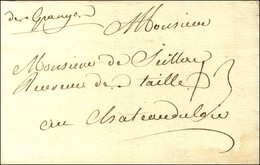 de Grange
Monsieur
Monsieur de Seillon
Receveur de taille 3
au Chateaudeloir